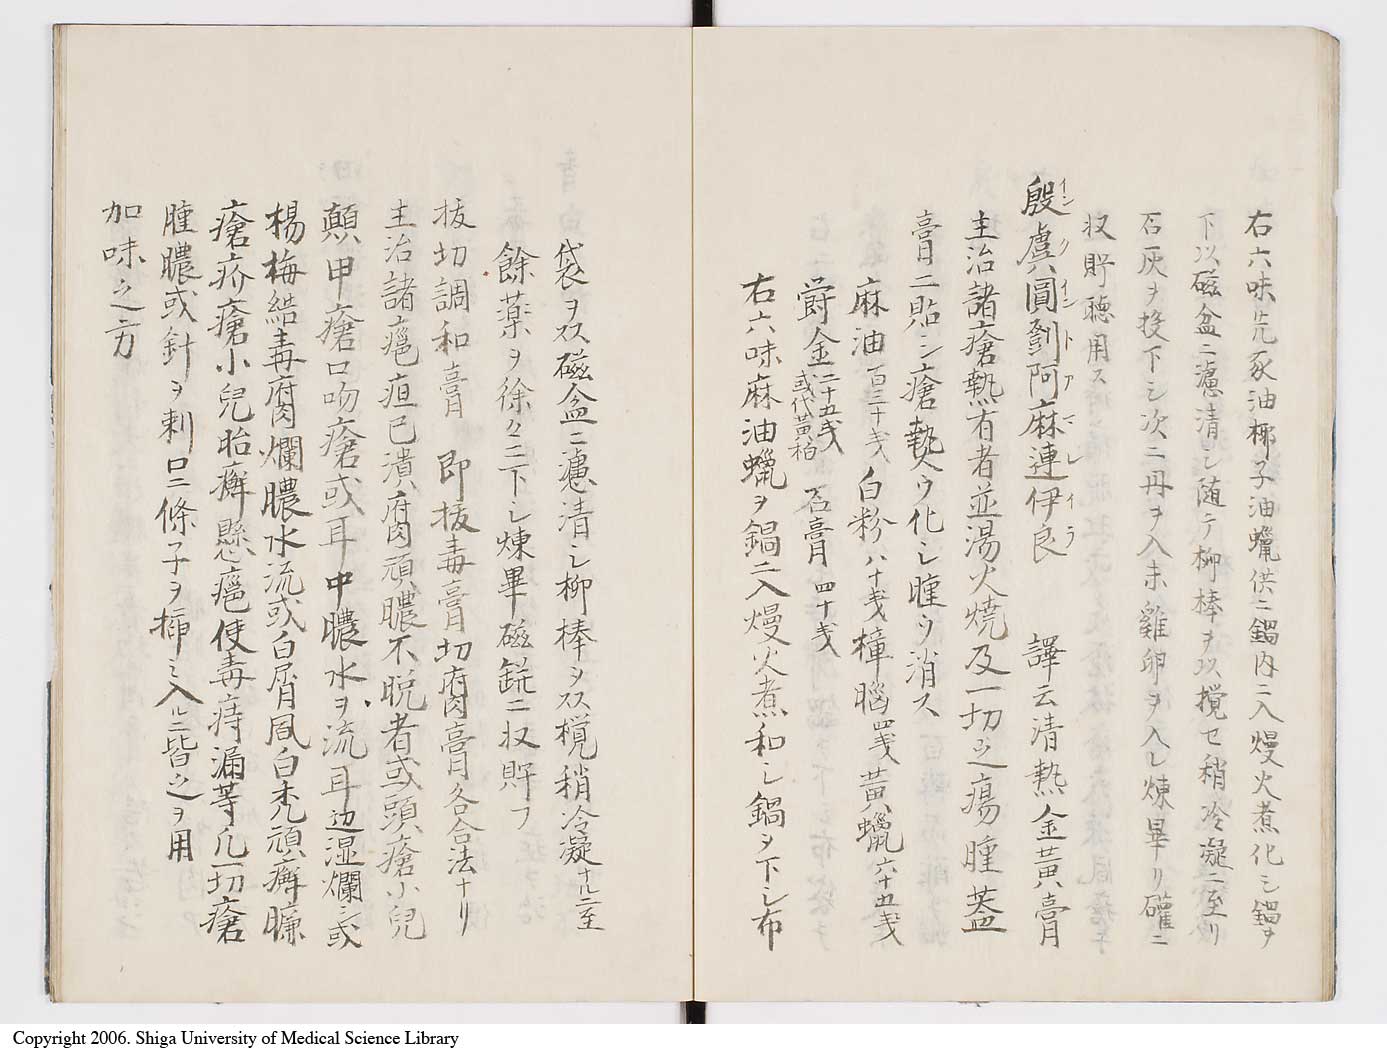 右六味先豕油椰子油蠟供ニ鍋内ニ入熳火煮化シ鍋ヲ
下以磁盆ニ濾清シ随テ柳棒ヲ以攪セ稍冷凝ニ至リ
石灰ヲ投下シ次ニ丹ヲ入末雞卵ヲ入レ煉畢リ礶ニ
収貯聴用ス
殷虞圓到阿麻連伊良 譯云清熱金黄膏
インクイントアマレイラ
主治諸瘡熱有者並湯火燒及一切之瘍腫蓋
膏ニ貼シ瘡熱ヲ化シ腫ヲ消ス
麻油百三十戔 白粉八十戔 樟脳四戔 黄蠟六十五戔
欝金二十五戔或代黄柏 石膏四十戔
右六味麻油蠟ヲ鍋ニ入熳火煮和シ鍋ヲ下シ布
袋ヲ以磁盆ニ濾清シ柳棒ヲ以攪稍冷凝ナルニ至
餘薬ヲ徐々ニ下シ煉畢磁鋎ニ収貯フ
抜切調和膏 即抜毒膏切腐膏各合法ナリ
主治諸瘡疽已潰腐肉頑膿不脱者或頭瘡小兒
顛甲瘡口吻瘡或耳中膿水ヲ流耳辺湿爛シ或
楊梅結毒腐肉爛膿水流或白屑風白禿頑癬臁
瘡疥瘡小兒胎癬懸瘡便毒痔漏等凡一切瘡
腫膿或針ヲ刺口ニ條子ヲ挿ミ入ルニ皆之ヲ用
加味之方
Copyright 2006. Shiga University of Medical Science Library